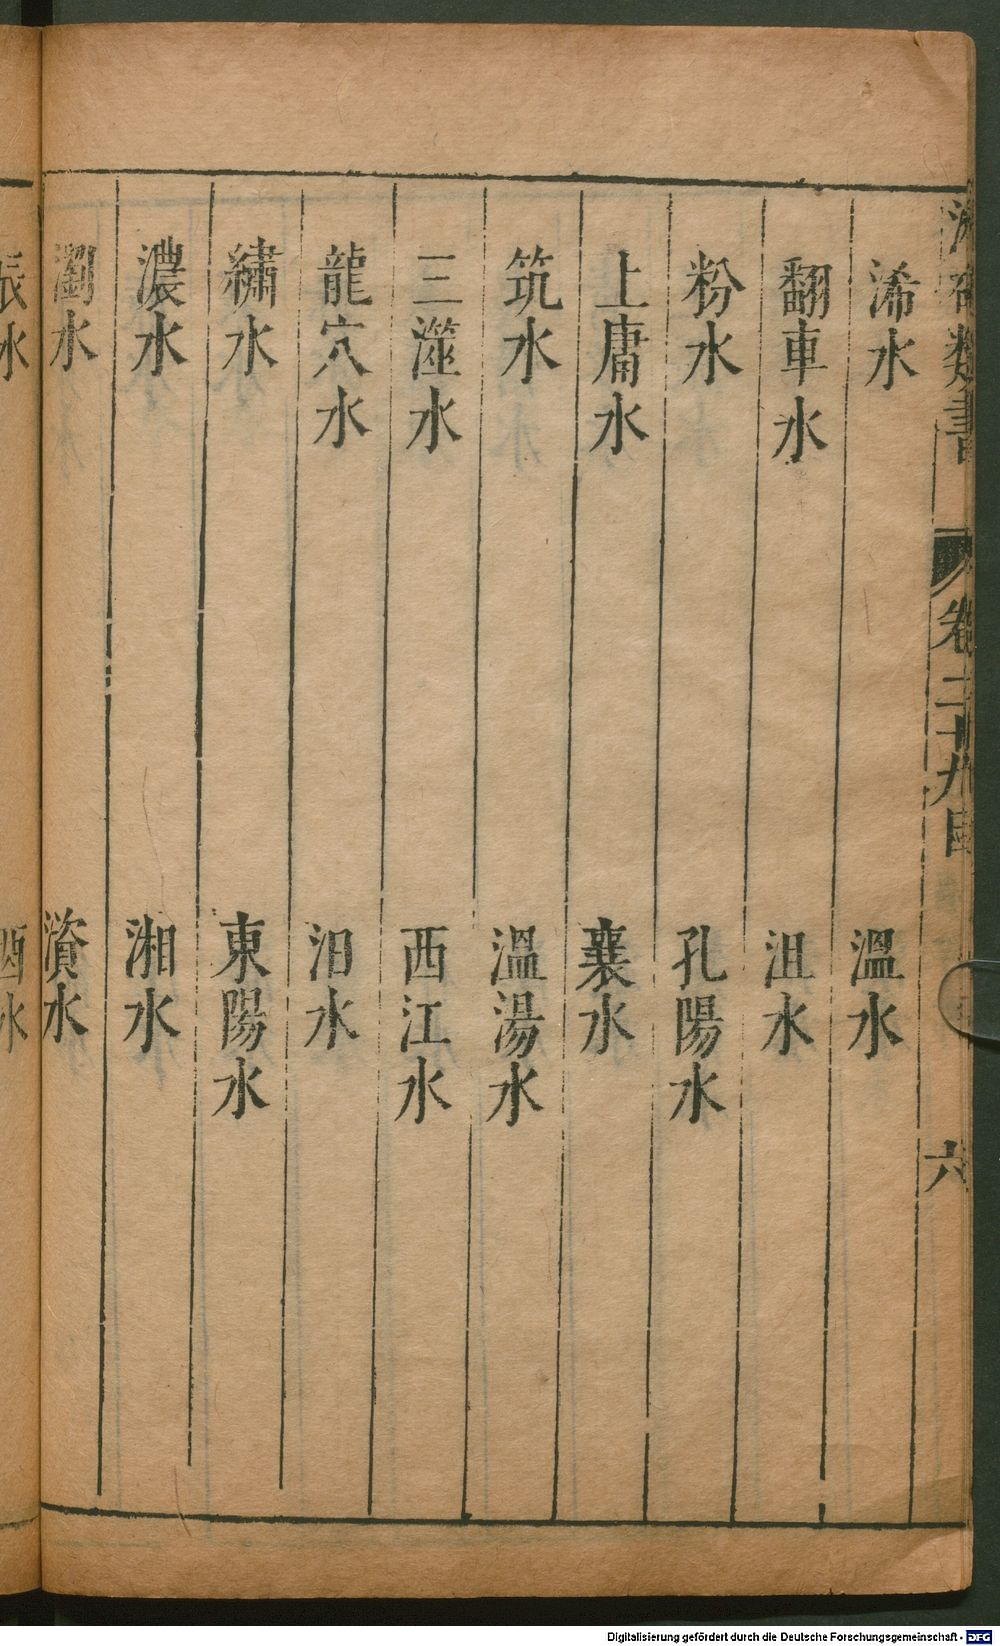 淵鑑類書 卷二十九目 六
浠水 溫水
翻車水 沮水
粉水 孔陽水
上庸水 襄水
筑水 溫湯水
三澨水 西江水
龍穴水 汨水
繡水 東陽水
濃水 湘水
瀏水 澬水
辰水 酉水
Digitalisierung gefördert durch die Deutsche Forschungsgemeinschaft - DFG